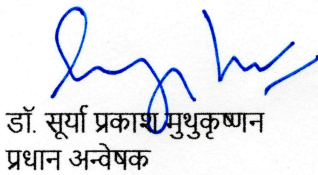 डॉ. सूर्या प्रकाश मुथुकृष्णन
प्रधान अन्वेषक